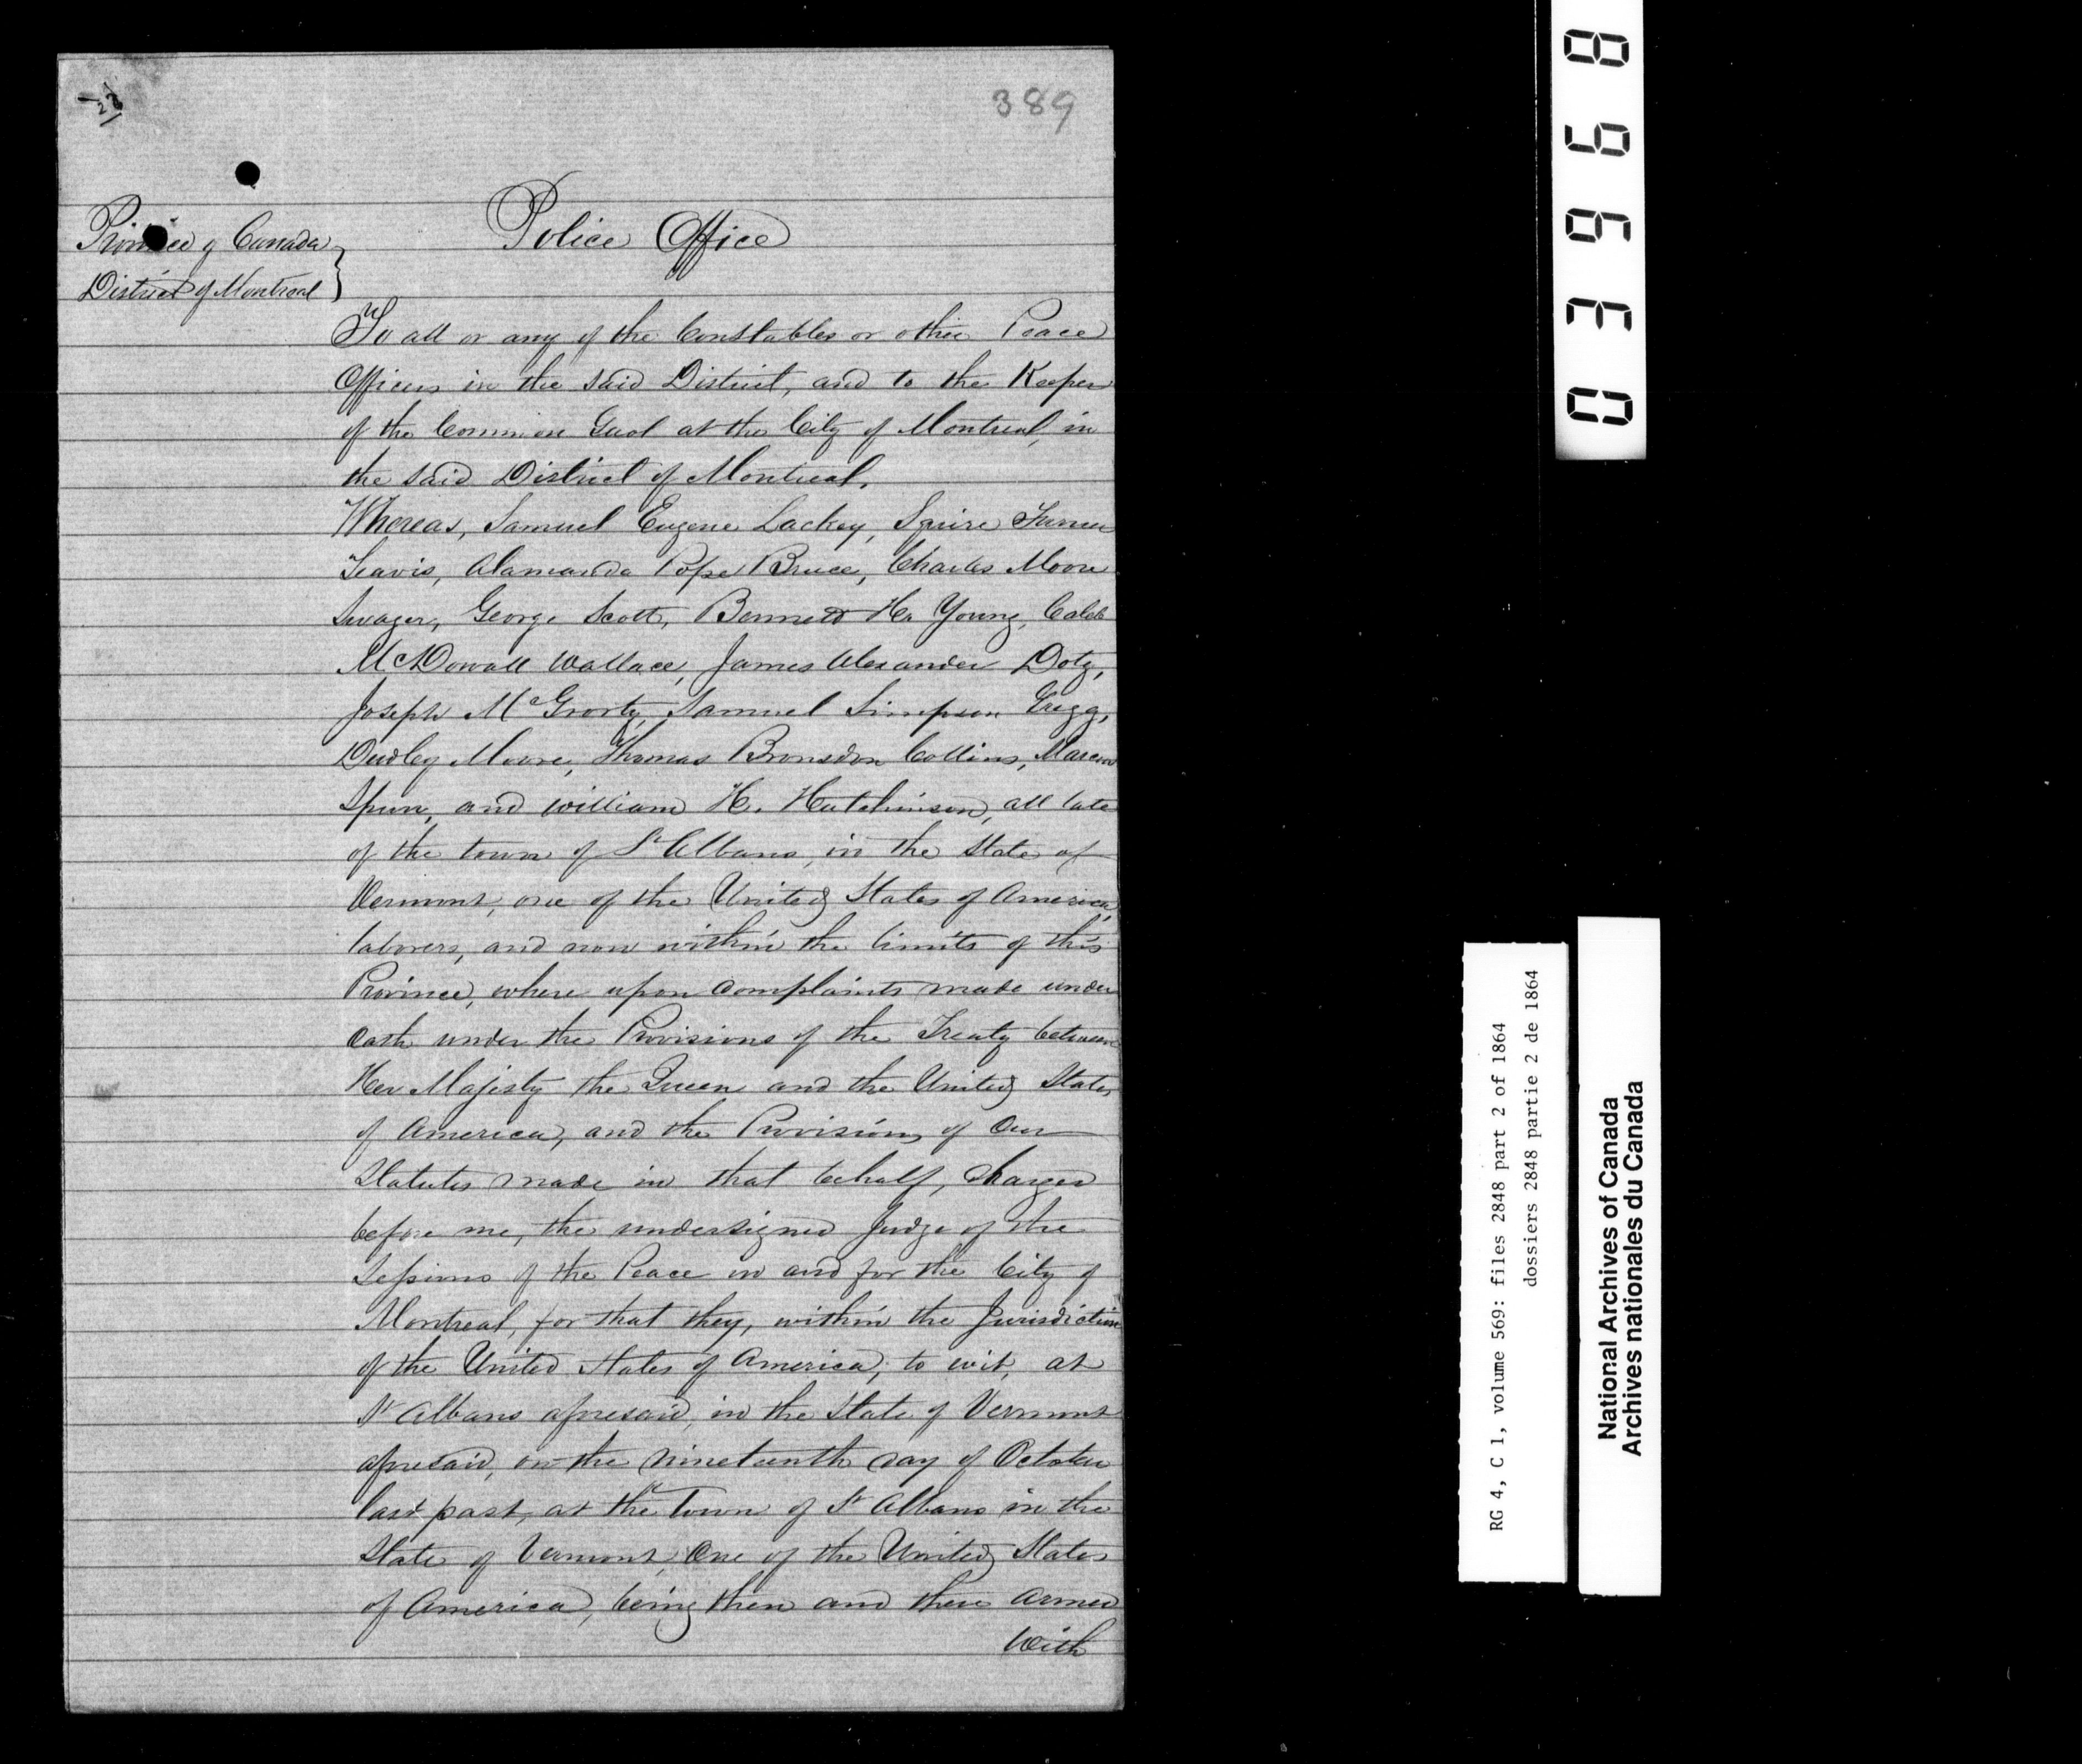 389
Province of Canada
District of Montreal
Police Office
To all or any of the Constables or other Peace
Officers in the said District, and to the Keeper
of the Common Gaol at the City of Montreal, in
the said District of Montreal.
Whereas, Samuel Eugene Lackey, Squire Turner
Teavis, Alamanda Pope Bruce, Charles Moore
Swager, George Scott, Bennett H. Young, Caleb
McDowall Wallace, James Alexander Doty,
Joseph McGrorty, Samuel Simpson Gregg,
Dudley Moore, Thomas Bronsdon Collins, Marcus
Spurr, and William H. Hutchinson, all late
of the town of St Albans, in the State of
Vermont, one of the United States of America,
laborers, and now within the limits of this
Province, where upon complaints made under
Oath under the Provisions of the Treaty between
Her Majesty the Queen and the United States
of America, and the Provisions of Our
Statutes made in that behalf, charged
before me, the undersigned Judge of the
Sessions of the Peace in and for the City of
Montreal, for that they, within the Jurisdiction
of the United States of America, to wit, at
St Albans aforesaid, in the State of Vermont
aforesaid, on the nineteenth day of October
last past, at the Town of St Albans in the
State of Vermont, One of the United States
of America, being then and there armed
with
03968
RG 4, C 1, volume 569: files 2848 part 2 of 1864
dossiers 2848 partie 2 de 1864
National Archives of Canada
Archives nationales du Canada